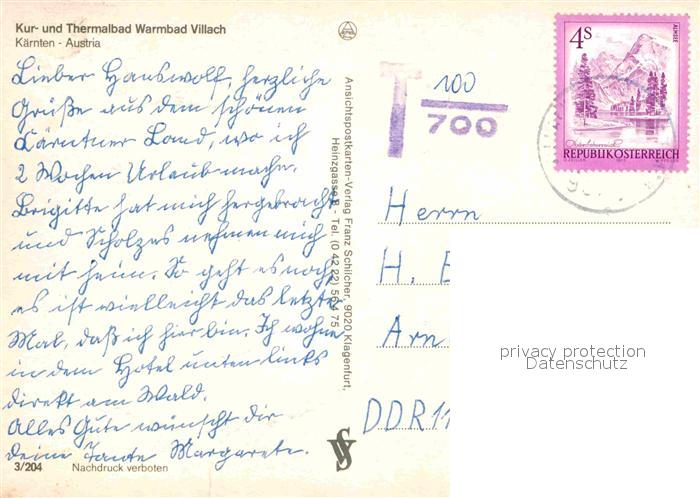 Kur- und Thermalbad Warmbad Villach
Kärnten - Austria
Lieber Hanswolf, herzliche
Grüße aus dem schönen
Kärntner Land, wo ich
2 Wochen Urlaub mache.
Brigitte hat mich hergebracht
und Scholzes nehmen mich
mit heim. So geht es noch,
es ist vielleicht das letzte
Mal, daß ich hier bin. Ich wohne
in dem Hotel unten links
direkt am Wald.
Alles Gute wünscht dir
deine Tante Margarete.
3/204 Nachdruck verboten
Ansichtspostkarten-Verlag Franz Schilcher, 9020 Klagenfurt,
Heinzgasse - Tel. (0 42 22) 56 4 75
T 100
700
4S
ALMSEE
REPUBLIK ÖSTERREICH
Herrn
H. E
Arn
DDR 11
privacy protection
Datenschutz